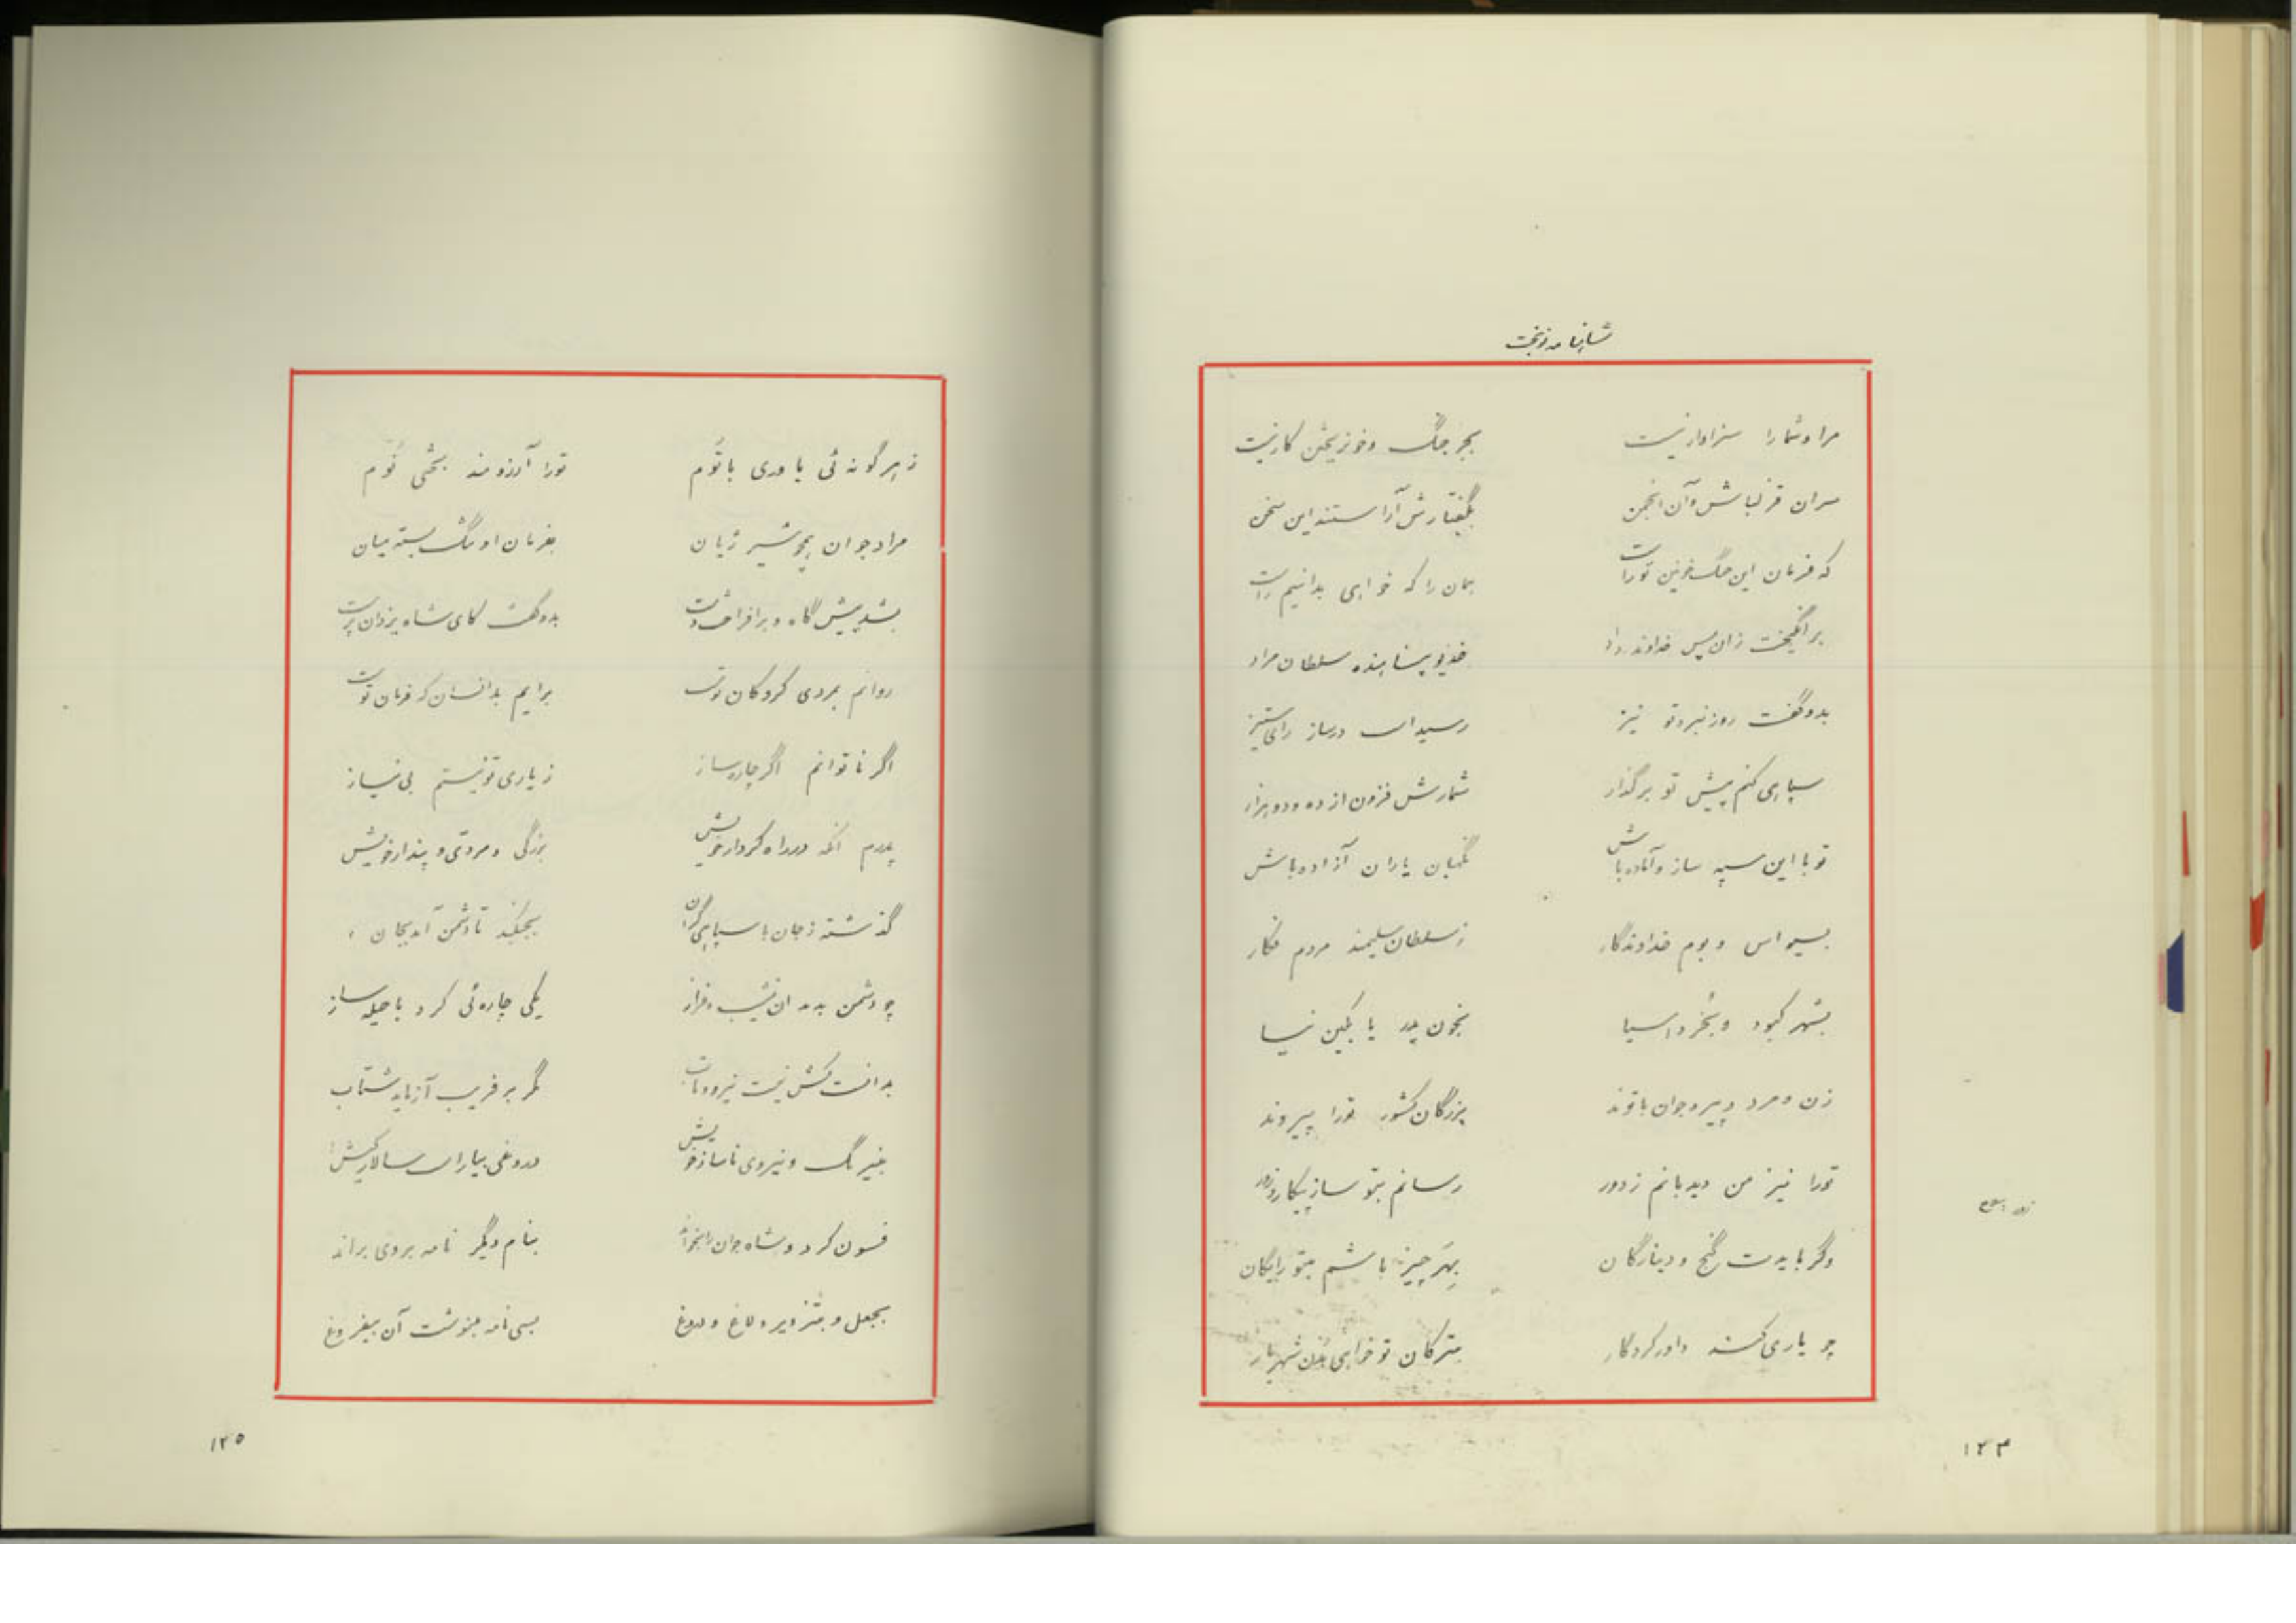 شاهنامه نوبخت
مرا و شما را سزاوار نیست بجز جنگ و خونریختن کار نیست
سران قزلباش و آن انجمن بگفتارش آراستند این سخن
که فرمان این جنگ خونین توراست همان را که خواهی بدانیم راست
برانگیخت زان پس خداوند راد خدیو پناهنده سلطان مراد
بدو گفت روز نبرد تو نیز رسید است درساز رای ستیز
سپاهی کنم پیش تو برگذار شمارش فزون از ده و دو هزار
تو با این سپه ساز و آماده باش نگهبان یاران آزاده باش
بسیواس و بوم خداوندگار ز سلطان سلیمند مردم فکار
بشهر کبود و آسیا بخون پدر یا بکین نیا
زن و مرد و پیر و جوان با توند بزرگان کشور تورا پیروند
تورا نیز من دیدبانم ز دور رسانم بتو ساز پیکار و زور
وگر بایدت گنج و دینارگان بهر چیز باشم بتو رایگان
چو یاری کند داور کردگار بترکان تو خواهی بدن شهریار
۱۲۴
ز هر گونه ئی یاوری با توم تورا آرزومند بختی نوم
مراد جوان همچو شیر ژیان بفرمان او تنگ بسته میان
بشد پیش گاه و برافراشت دست بدو گفت کای شاه یزدان پرست
روانم بمردی گروگان توست برایم بدانسان که فرمان توست
اگر ناتوانم اگر چاره ساز ز یاری تو نیستم بی نیاز
پدرم آنکه در راه کردار خویش بزرگی و مردی و پندار خویش
گذشته ز جان با سپاهی گران بجنگید تا دشمن آمد بجان
چو دشمن بدید آن نشیب و فراز یکی چاره ئی کرد با حیله ساز
بدانست کش نیست نیرو و تاب مگر بر فریب آزماید شتاب
بنیرنگ و نیروی ناساز خویش دروغی بیاراست سالار کیش
فسون کرد و شاه جوان را بخواند بنام دگر نامه بروی براند
بجعل و بتزویر و لاغ و دروغ بسی نامه بنوشت آن بیفروغ
۱۲۵